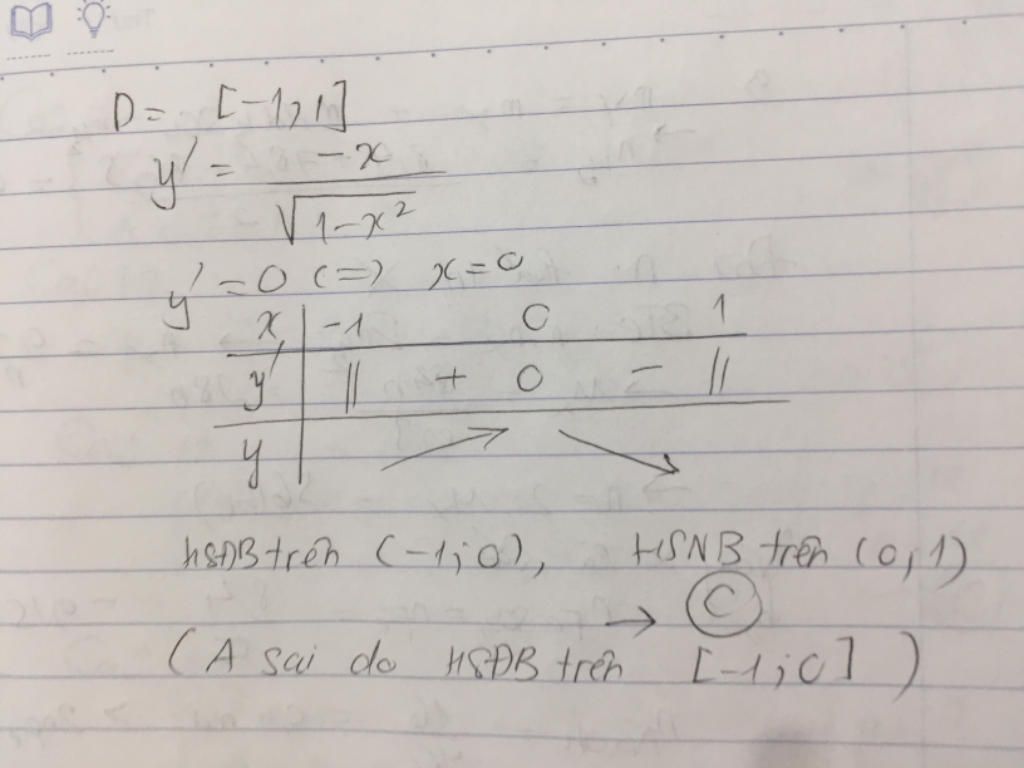 D = [-1, 1]
y' = -x / √(1-x²)
y' = 0 (=) x = 0
x | -1 0 1
y' | || + 0 - ||
y | ↗ ↘
HSĐB trên (-1; 0), HSNB trên (0, 1)
→ C
(A sai do HSĐB trên [-1; 0])